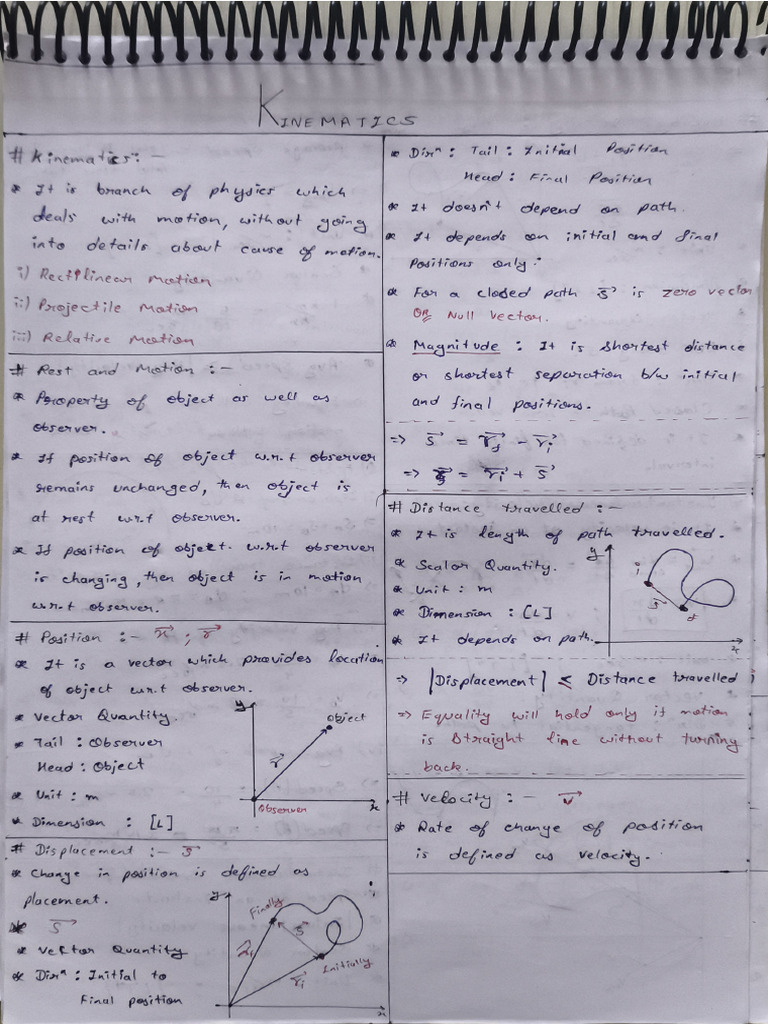 KINEMATICS
# Kinematics: -
* It is branch of physics which
deals with motion, without going
into details about cause of motion.
i) Rectilinear Motion
ii) Projectile Motion
iii) Relative Motion
# Rest and Motion :-
* Property of object as well as
observer.
* If position of object w.r.t observer
remains unchanged, then object is
at rest w.r.t observer.
* If position of object w.r.t observer
is changing, then object is in motion
w.r.t observer.
# Position :- x⃗ ; r⃗
* It is a vector which provides location
of object w.r.t observer.
* Vector Quantity.
* Tail : Observer
Head : Object
* Unit : m
* Dimension : [L]
y
Object
r⃗
Observer
x
# Displacement :- s⃗
* Change in position is defined as
placement.
* s⃗
* Vector Quantity
* Dirⁿ : Initial to
Final position
y
Finally
s⃗
Initially
r⃗i
x
* Dirⁿ : Tail : Initial Position
Head : Final Position
* It doesn't depend on path.
* It depends on initial and final
positions only.
* For a closed path s⃗ is zero vector
OR Null vector.
* Magnitude : It is shortest distance
or shortest separation b/w initial
and final positions.
=> s⃗ = r⃗f - r⃗i
=> r⃗f = r⃗i + s⃗
# Distance travelled :-
* It is length of path travelled.
* Scalar Quantity.
* Unit : m
* Dimension : [L]
* It depends on path.
y
i
s⃗
f
x
=> |Displacement| ≤ Distance travelled
=> Equality will hold only if motion
is Straight line without turning
back.
# Velocity :- v⃗
* Rate of change of position
is defined as velocity.